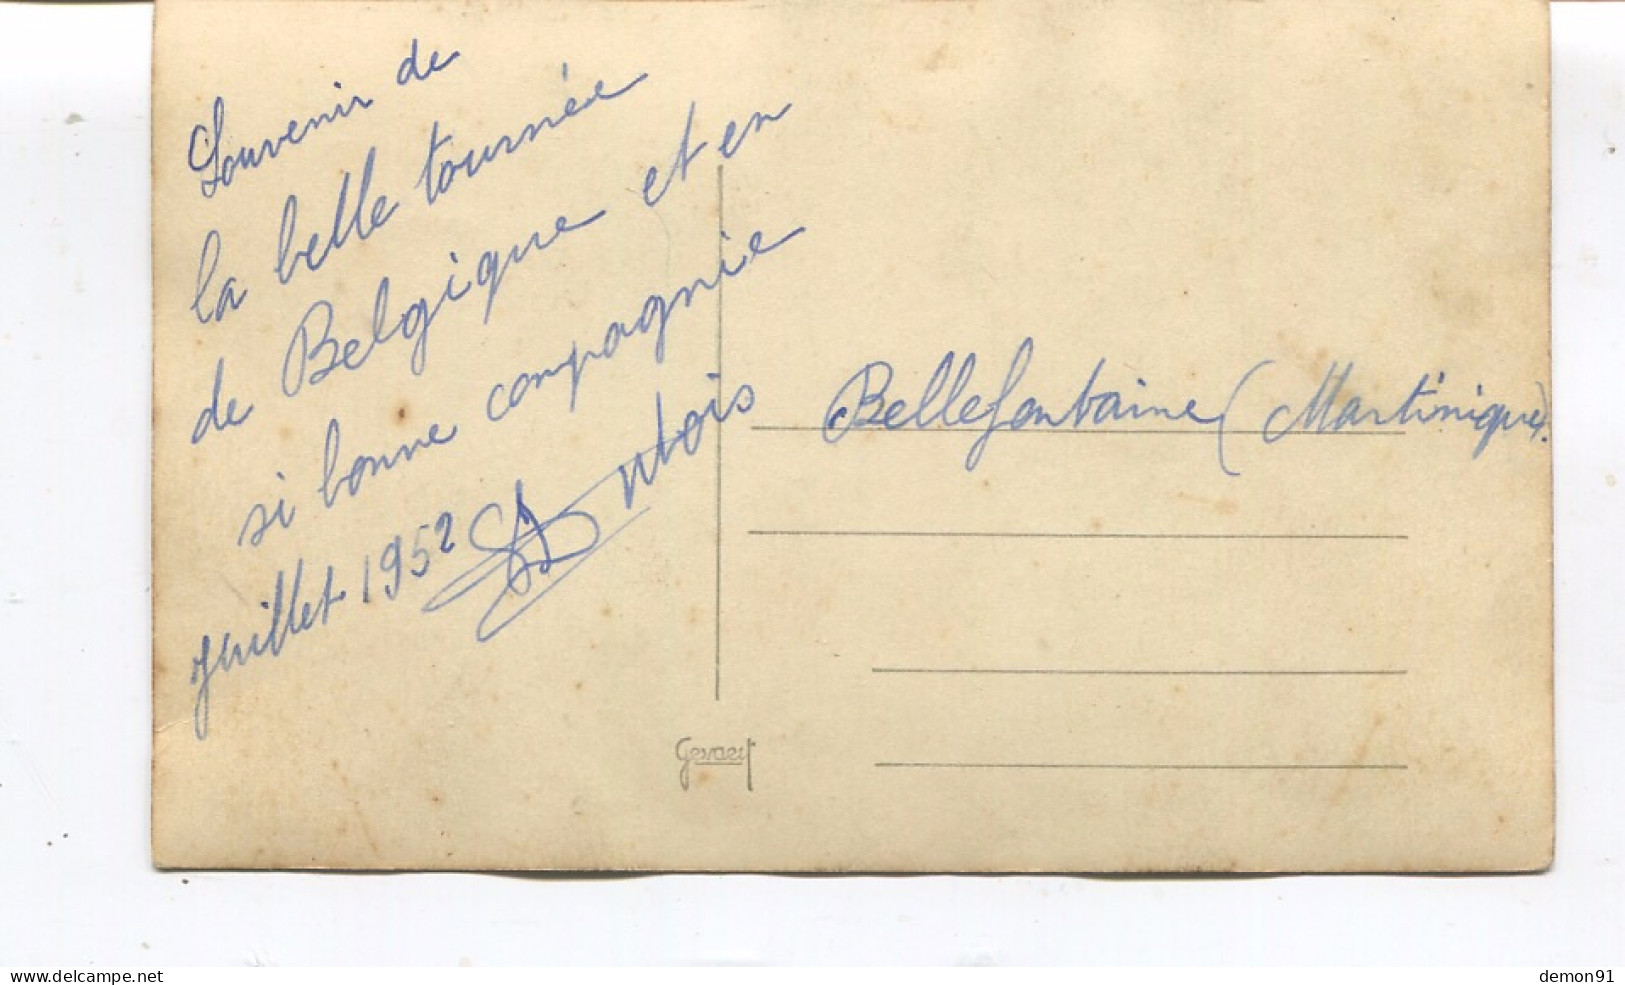 Souvenir de
la belle tournée
de Belgique et en
si bonne compagnie
juillet 1952
Bellefontaine (Martinique).
Gevaert
www.delcampe.net
demon91